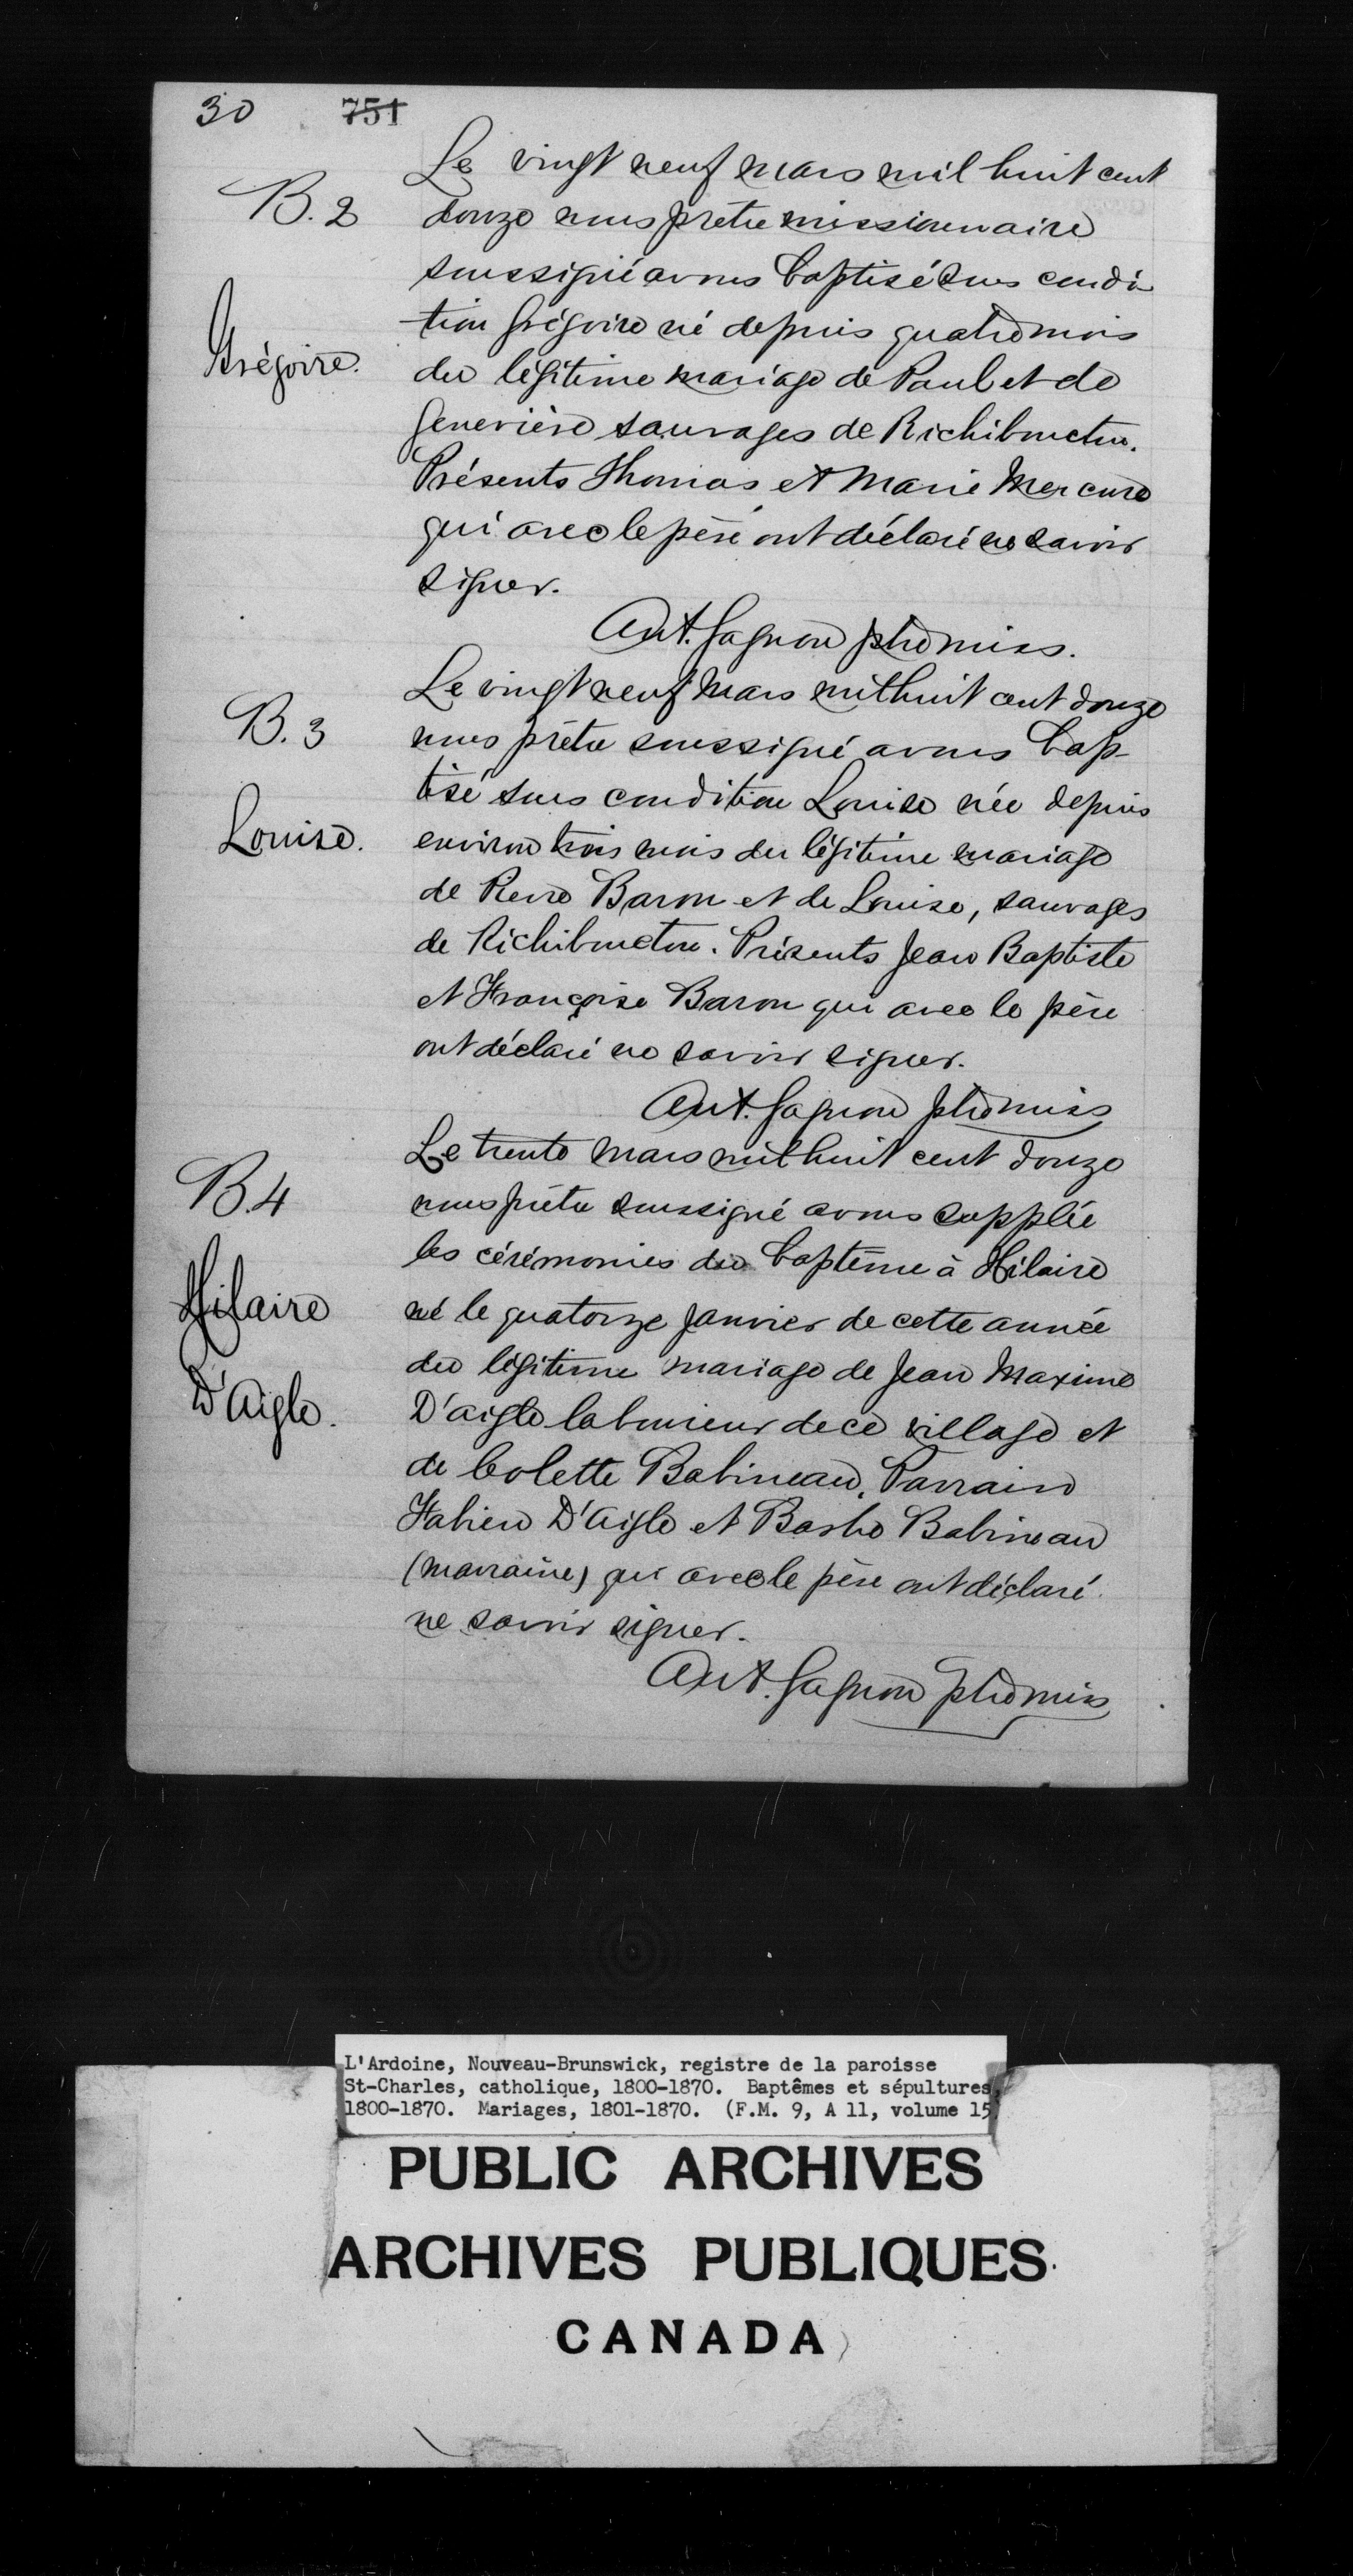 30 751
Le vingt neuf mars mil huit cent
B. 2 douze nous prêtre missionnaire
soussigné avons baptisé sous condi
tion Grégoire né depuis quatre mois
Grégoire. du légitime mariage de Paul et de
Geneviève sauvages de Richibouctou.
Présents Thomas et Marie Mercure
qui avec le père ont déclaré ne savoir
signer.
Ant. Gagnon ptre miss.
Le vingt neuf mars mil huit cent douze
B. 3 nous prêtre soussigné avons bap-
tisé sous condition Louise née depuis
Louise. environ trois mois du légitime mariage
de Pierre Baron et de Louise, sauvages
de Richibouctou. Présents Jean Baptiste
et Françoise Baron qui avec le père
ont déclaré ne savoir signer.
Ant. Gagnon ptre miss
Le trente mars mil huit cent douze
B. 4 nous prêtre soussigné avons supplée
les cérémonies du baptême à Hilaire
Hilaire né le quatorze janvier de cette année
du légitime mariage de Jean Maxime
D'Aigle. D'aigle laboureur de ce village et
de Colette Babineau. Parrain
Fabien D'Aigle et Babineau
(marraine) qui avec le père ont déclaré
ne savoir signer.
Ant. Gagnon ptre miss
L'Ardoine, Nouveau-Brunswick, registre de la paroisse
St-Charles, catholique, 1800-1870. Baptêmes et sépultures,
1800-1870. Mariages, 1801-1870. (F.M. 9, A 11, volume 15)
PUBLIC ARCHIVES
ARCHIVES PUBLIQUES
CANADA